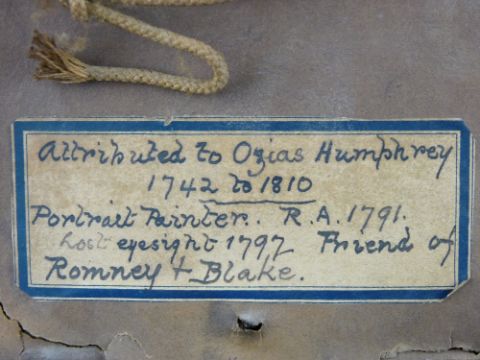 Attributed to Ozias Humphrey
1742 to 1810
Portrait Painter. R.A. 1791.
Lost eyesight 1797 Friend of
Romney + Blake.